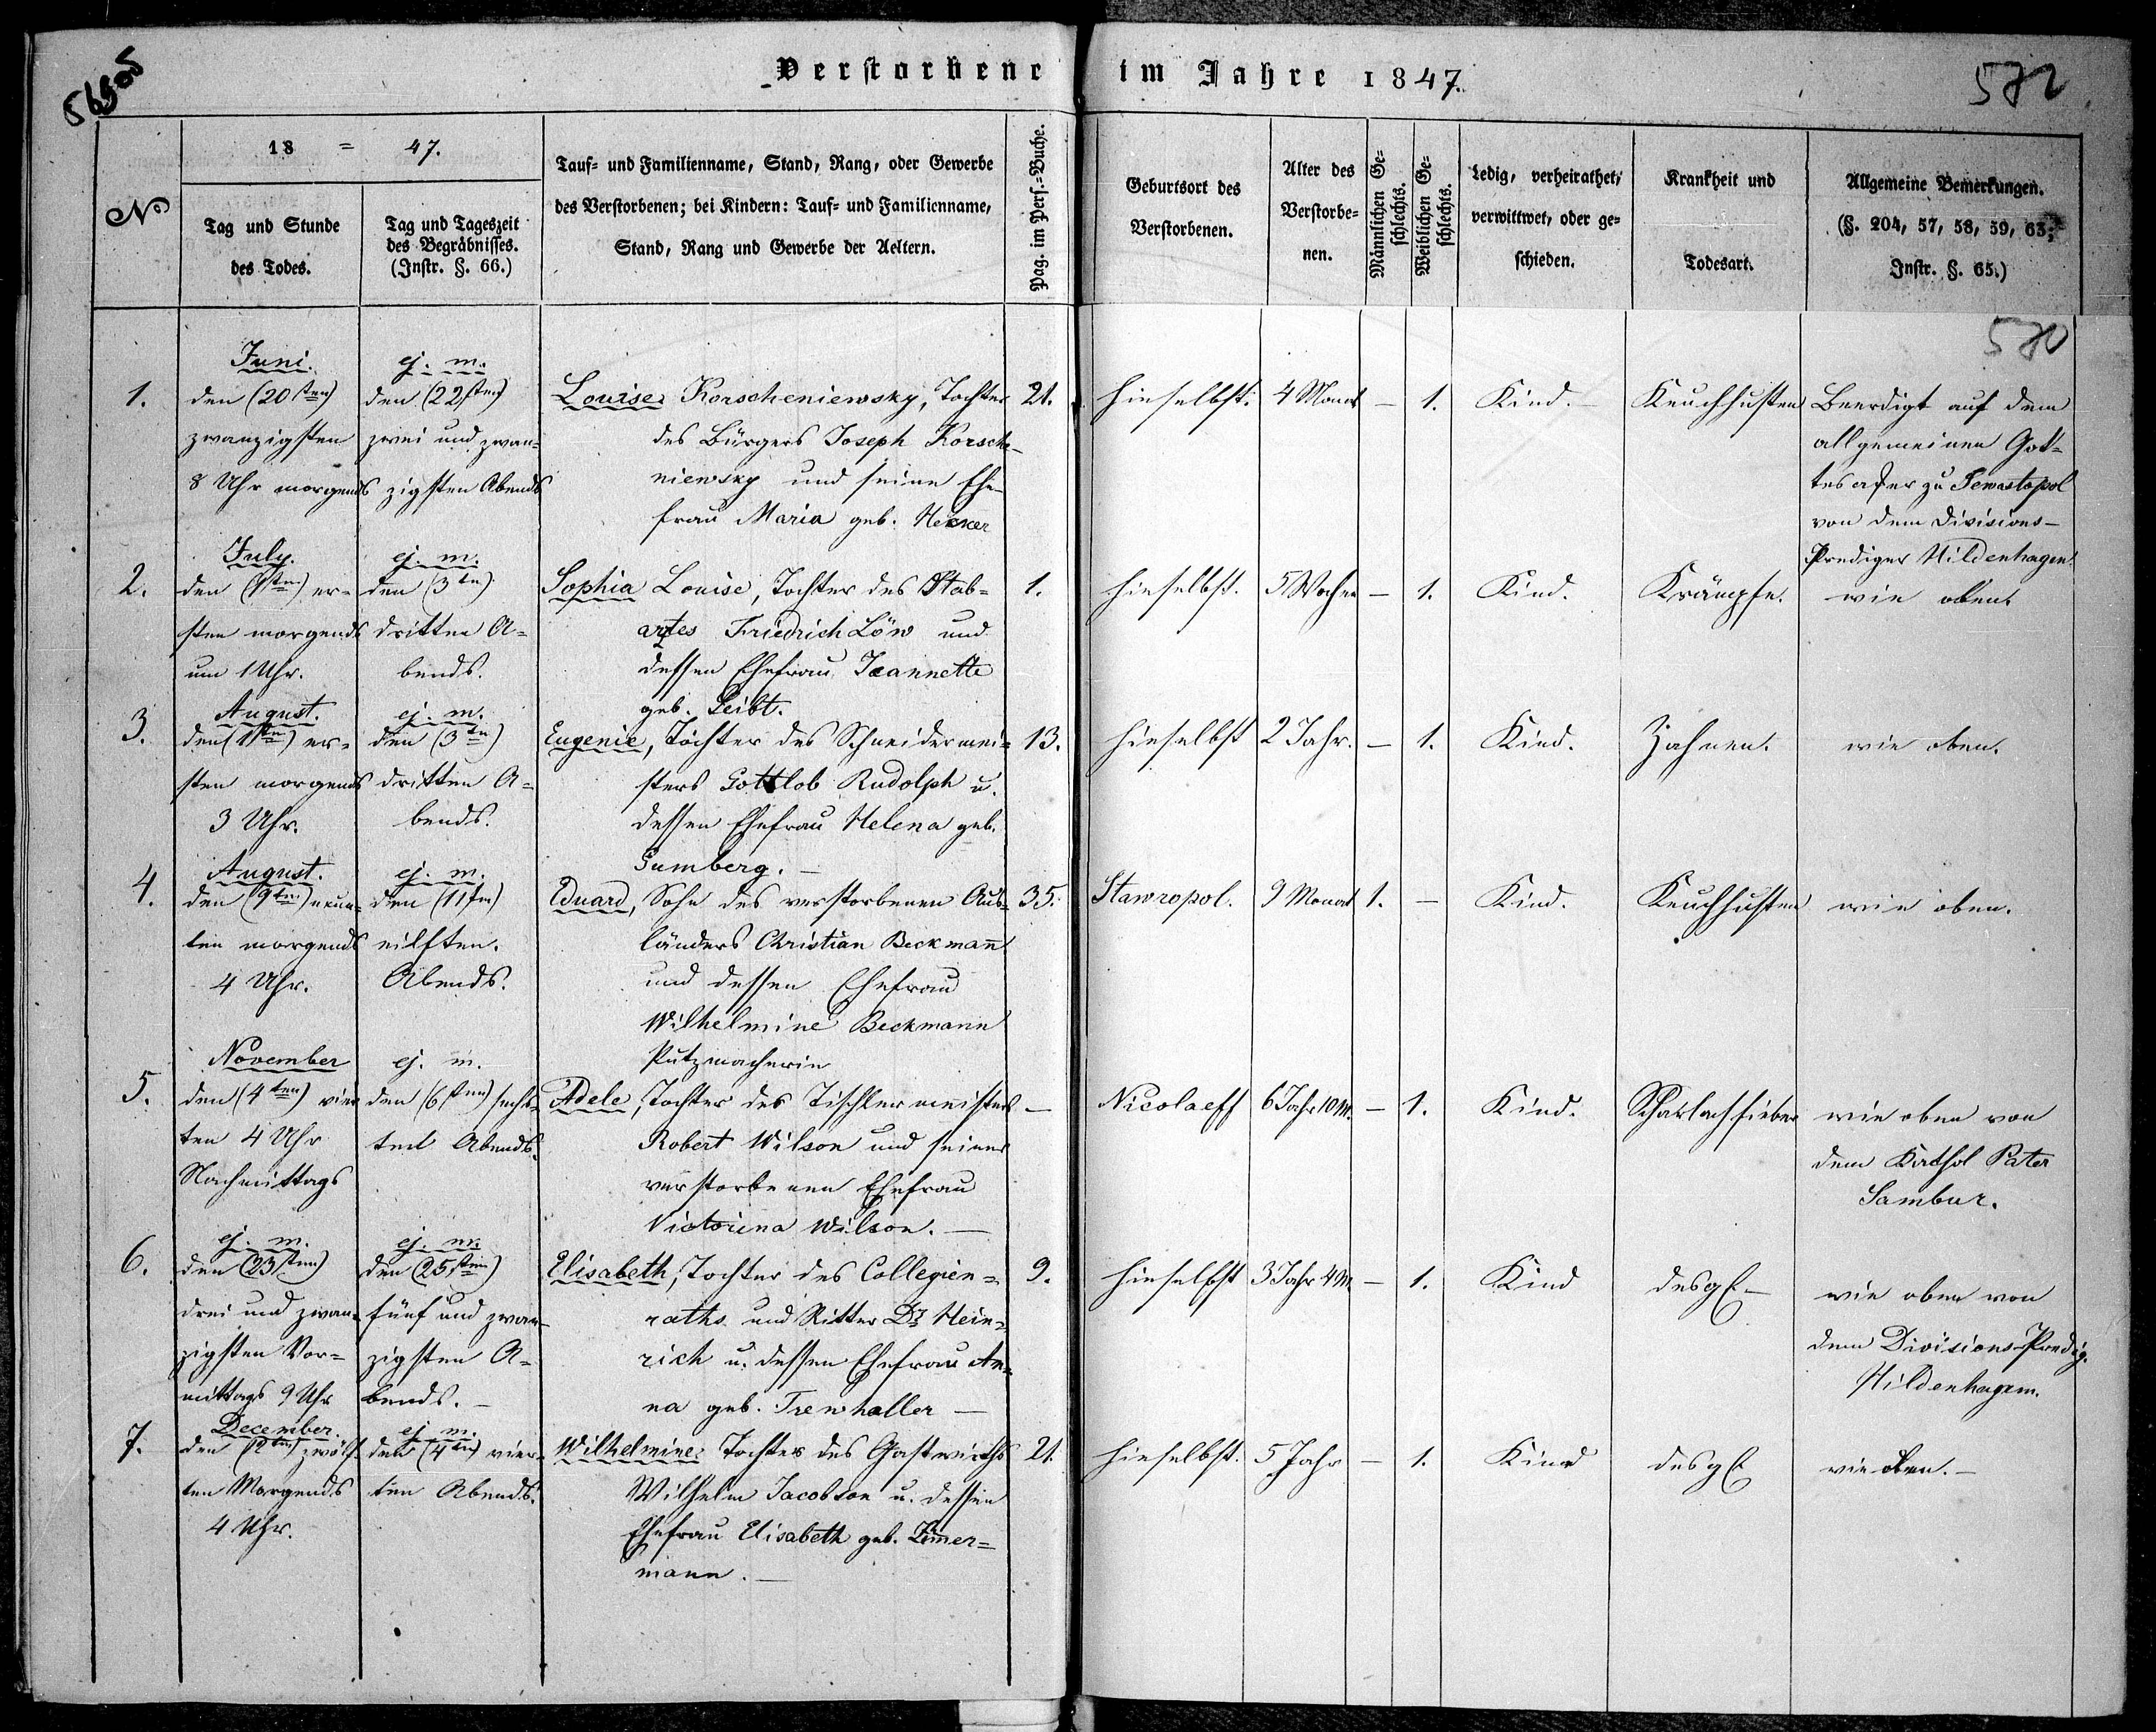 56505
Verstorbene im Jahre 1847.
572
№
18 = 47.
Tag und Stunde
des Todes.
Tag und Tageszeit
des Begräbnisses.
(Instr. §. 66.)
Tauf- und Familienname, Stand, Rang, oder Gewerbe
des Verstorbenen; bei Kindern: Tauf- und Familienname,
Stand, Rang und Gewerbe der Aeltern.
Pag. im Pers.-Buche.
Geburtsort des
Verstorbenen.
Alter des
Verstorbe-
nen.
Männlichen Ge-
schlechts.
Weiblichen Ge-
schlechts.
Ledig, verheirathet,
verwittwet, oder ge-
schieden.
Krankheit und
Todesart.
Allgemeine Bemerkungen.
(§. 204, 57, 58, 59, 63;
Instr. §. 65.)
580
1.
Juni.
den (20sten)
zwanzigsten
8 Uhr morgends
ej. m.
den (22sten)
zwei und zwan-
zigsten Abends
Louise Korscheniewsky, Tochter
des Bürgers Joseph Korsche-
niewsky und seine Ehe-
frau Maria geb. Hecker
21.
hieselbst.
4 Monat
–
1.
Kind.
Keuchhusten
Beerdigt auf dem
allgemeinen Got-
tesaker zu Sewastopol
von dem Divisions-
Prediger Hildenhagen.
2.
July.
den (1sten) er-
sten morgends
um 1 Uhr.
ej. m.
den (3ten)
dritten A-
bends.
Sophia Louise, Tochter des Stab-
arztes Friedrich Löw und
dessen Ehefrau Jeannette
geb. Leibt.
1.
hieselbst.
5 Wochen
–
1.
Kind.
Krämpfe.
wie oben.
3.
August.
den (1sten) er-
sten morgends
3 Uhr.
ej. m.
den (3ten)
dritten A-
bends.
Eugenie, Tochter des Schneidermei-
sters Gottlob Rudolph u.
dessen Ehefrau Helena geb.
Gumberg. –
13.
hieselbst
2 Jahr.
–
1.
Kind.
Zahnen.
wie oben.
4.
August.
den (9ten) neun-
ten morgends
4 Uhr.
ej. m.
den (11ten)
eilften.
Abends.
Eduard, Sohn des verstorbenen Aus-
länders Christian Beckmann
und dessen Ehefrau
Wilhelmine Beckmann
Putzmacherin
35.
Stawropol.
9 Monat
1.
–
Kind.
Keuchhusten
wie oben.
5.
November
den (4ten) vier
ten 4 Uhr
Nachmittags
ej. m.
den (6sten) sechs-
ten Abends.
Adele, Tochter des Tischlermeisters
Robert Wilson und seiner
verstorbenen Ehefrau
Victorina Wilson. –
–
Nicolaeff
6 Jahr 10 M.
–
1.
Kind.
Scharlachfieber
wie oben von
dem Kathol Pater
Sambur.
6.
ej. m.
den (23sten)
drei und zwan-
zigsten Vor-
mittags 9 Uhr
ej. m.
den (25sten)
fünf und zwan-
zigsten A-
bends. –
Elisabeth, Tochter des Collegien-
raths und Ritter Dr Hein-
rich u. dessen Ehefrau An-
na geb. Trewhaller –
9.
hieselbst
3 Jahr 4 M.
–
1.
Kind
desgl. –
wie oben von
dem Divisions-Predig.
Hildenhagen.
7.
December.
den (2ten) zwölf-
ten Morgends
4 Uhr.
ej. m.
den (4ten) vier-
ten Abends.
Wilhelmine. Tochter des Gastwirths
Wilhelm Jacobson u. dessen
Ehefrau Elisabeth geb. Zimer-
mann. –
21.
hieselbst.
5 Jahr
–
1.
Kind
desgl
wie oben. –